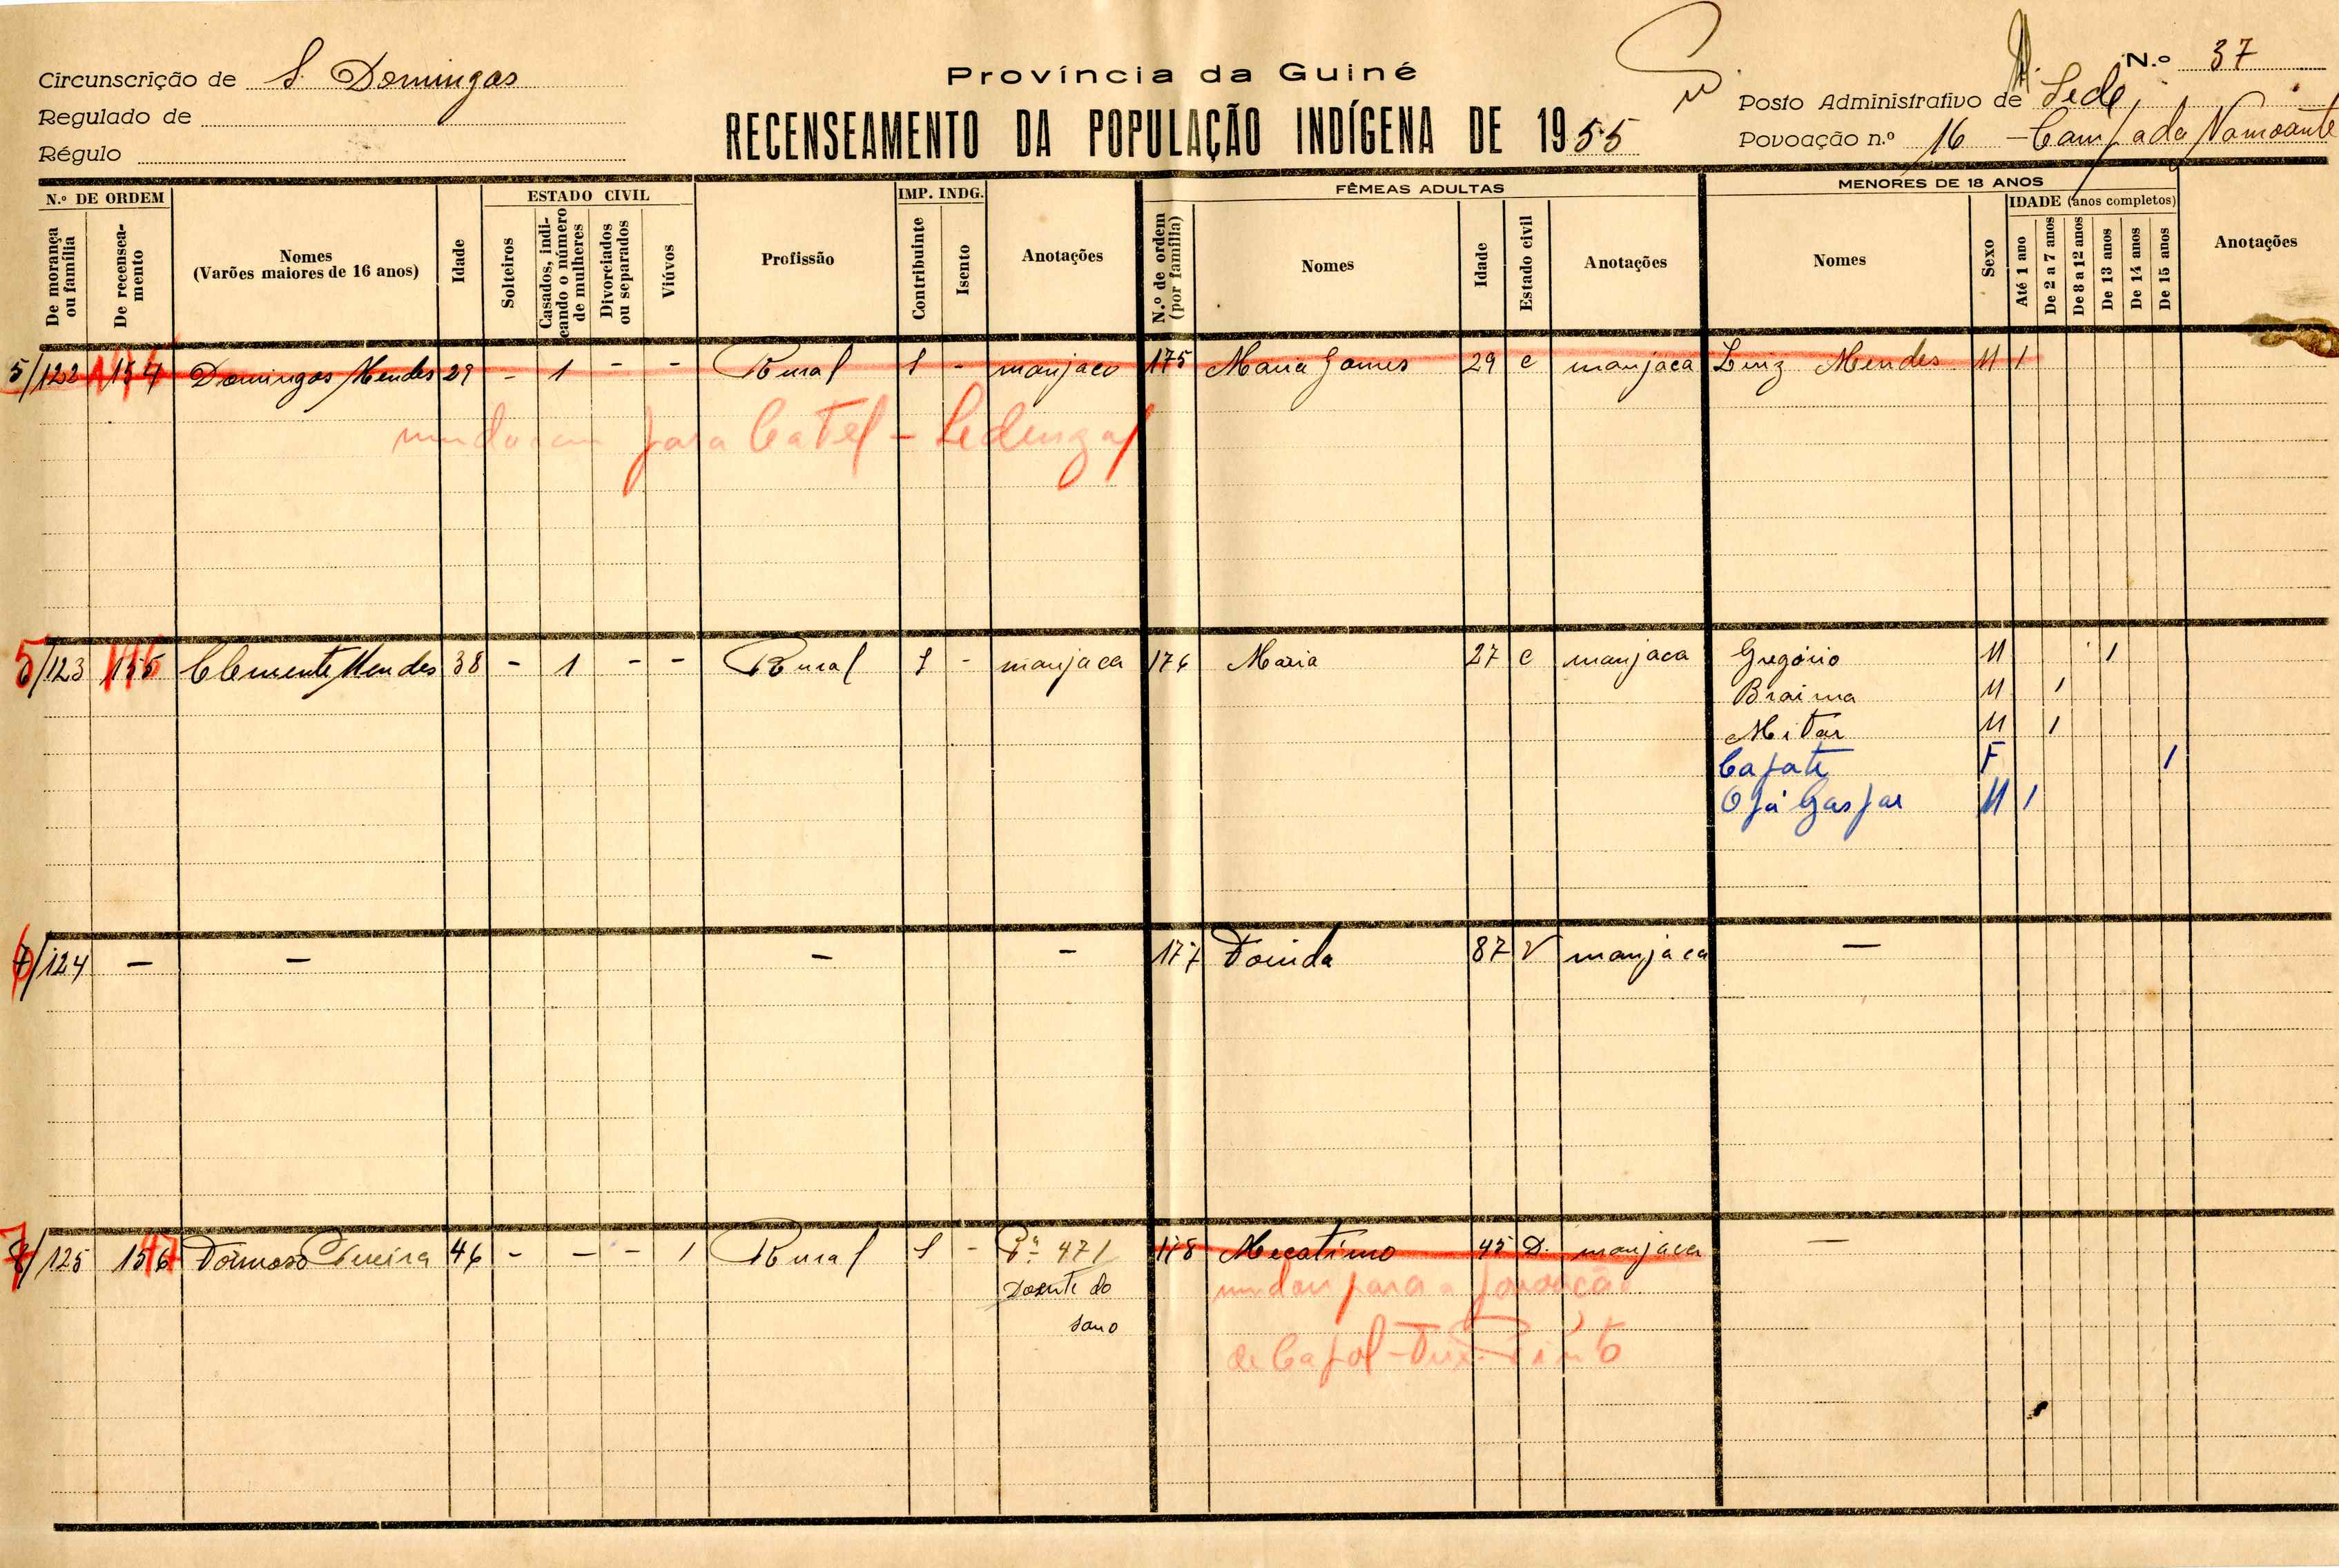 Circunscrição de S. Domingos
Regulado de
Régulo
Província da Guiné
RECENSEAMENTO DA POPULAÇÃO INDÍGENA DE 1955
N.º 37
Posto Administrativo de Sede
Povoação n.º 16 -
N.º DE ORDEM
De morança ou família
De recenseamento
Nomes
(Varões maiores de 16 anos)
Idade
ESTADO CIVIL
Solteiros
Casados, indicando o número de mulheres
Divorciados ou separados
Viúvos
Profissão
IMP. INDG.
Contribuinte
Isento
Anotações
FÊMEAS ADULTAS
N.º de ordem (por família)
Nomes
Idade
Estado civil
Anotações
MENORES DE 18 ANOS
Nomes
Sexo
IDADE (anos completos)
Até 1 ano
De 2 a 7 anos
De 8 a 12 anos
De 13 anos
De 14 anos
De 15 anos
Anotações
5/122 154 Domingos Mendes 29 - 1 - - Rural 1 - manjaco 175 Maria Gomes 29 C manjaca Luiz Mendes M 1
mudaram para Catel -
/123 155 Clemente Mendes 38 - 1 - - Rural 1 - manjaca 176 Maria 27 C manjaca Gregório M 1
Braima M 1
M 1
F 1
Gaspar M 1
/124 - - - - 177 87 V manjaca -
/125 156 46 - - - 1 Rural 1 - 471 178 Mecatimo 45 D. manjaca -
Doente do
sono
mudou para a povoação
de